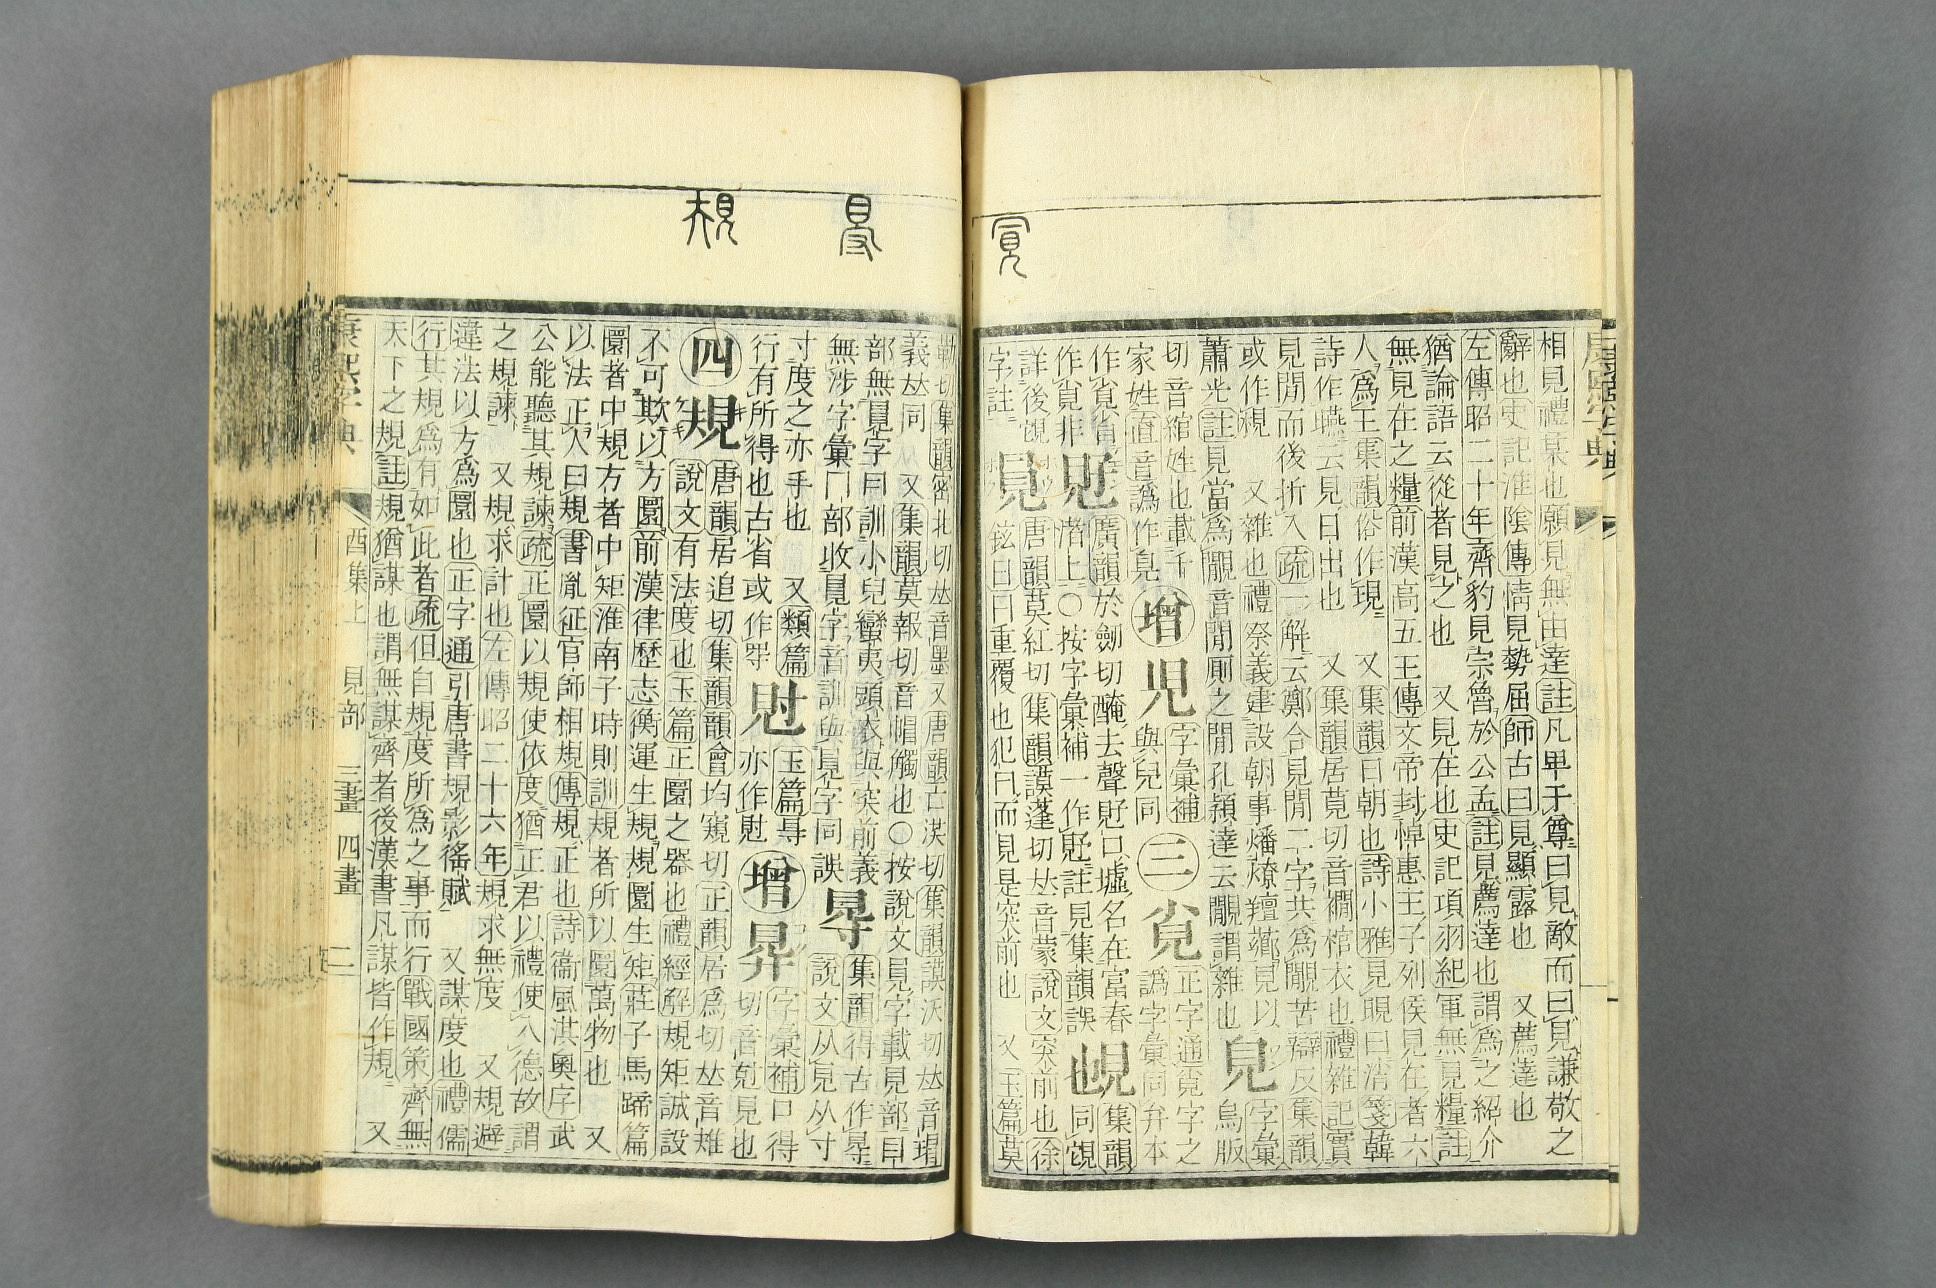 相見禮某也願見無由達註凡卑于尊曰見敵而曰見謙敬之
辭也史記淮陰傳情見勢屈師古曰見顯露也 又薦達也
左傳昭二十年齊豹見宗魯於公孟註見薦達也謂爲之紹介
猶論語云從者見之也 又見在也史記項羽紀軍無見糧註
無見在之糧前漢高五王傳文帝封悼惠王子列侯見在者六
人爲王集韻俗作現 又集韻曰朝也詩小雅見晛曰消箋韓
詩作曣云見日出也 又集韻居莧切音襉棺衣也禮雜記實
見閒而後折入疏一解云鄭合見閒二字共爲覸苦辯反集韻
或作䙹 又雜也禮祭義建設朝事燔燎羶薌見以
蕭光註見當爲覸音閒廁之閒孔穎達云覸謂雜也 皃 字彙烏版
切音綰姓也載千
家姓直音譌作皀 增 兒 字彙補與兒同 三 覍 正字通覓字之譌字彙同弁本
作覍非 廣韻於劒切醃去聲㒫口墟名在富春渚上○按字彙補一作註見集韻誤 集韻同覘
詳後覘字註 唐韻莫紅切集韻謨蓬切𠀤音蒙說文突前也徐鉉曰曰重覆也犯曰而見是突前也 又玉篇莫
勒切集韻密北切𠀤音墨又唐韻亡沃切集韻謨沃切𠀤音瑁
義𠀤同 又集韻莫報切音帽觸也○按說文見字載見部目
部無見字曰訓小兒蠻夷頭衣與突前義
無涉字彙冂部收見字音訓與見字同誤 㝵 集韻得古作㝵說文从見从寸
寸度之亦手也 又類篇
行有所得也古省或作㝵 䙷 玉篇㝵亦作䙷 增 字彙補口得切音剋見也
四 規 唐韻居追切集韻韻會均窺切正韻居爲切𠀤音雉
說文有法度也玉篇正圜之器也禮經解規矩誠設
不可欺以方圜前漢律歷志衡運生規規圜生矩莊子馬蹄篇
圜者中規方者中矩淮南子時則訓規者所以圜萬物也 又
以法正人曰規書胤征官師相規傳規正也詩衞風淇奧序武
公能聽其規諫疏正圜以規使依度猶正君以禮使入德故謂
之規諫 又規求計也左傳昭二十六年規求無度 又規避
違法以方爲圜也正字通引唐書規影徭賦 又謀度也禮儒
行其規爲有如此者疏但自規度所爲之事而行戰國策齊無
天下之規註規猶謀也謂無謀齊者後漢書凡謀皆作規 又
康熙字典
酉集上 見部 三畫 四畫 二